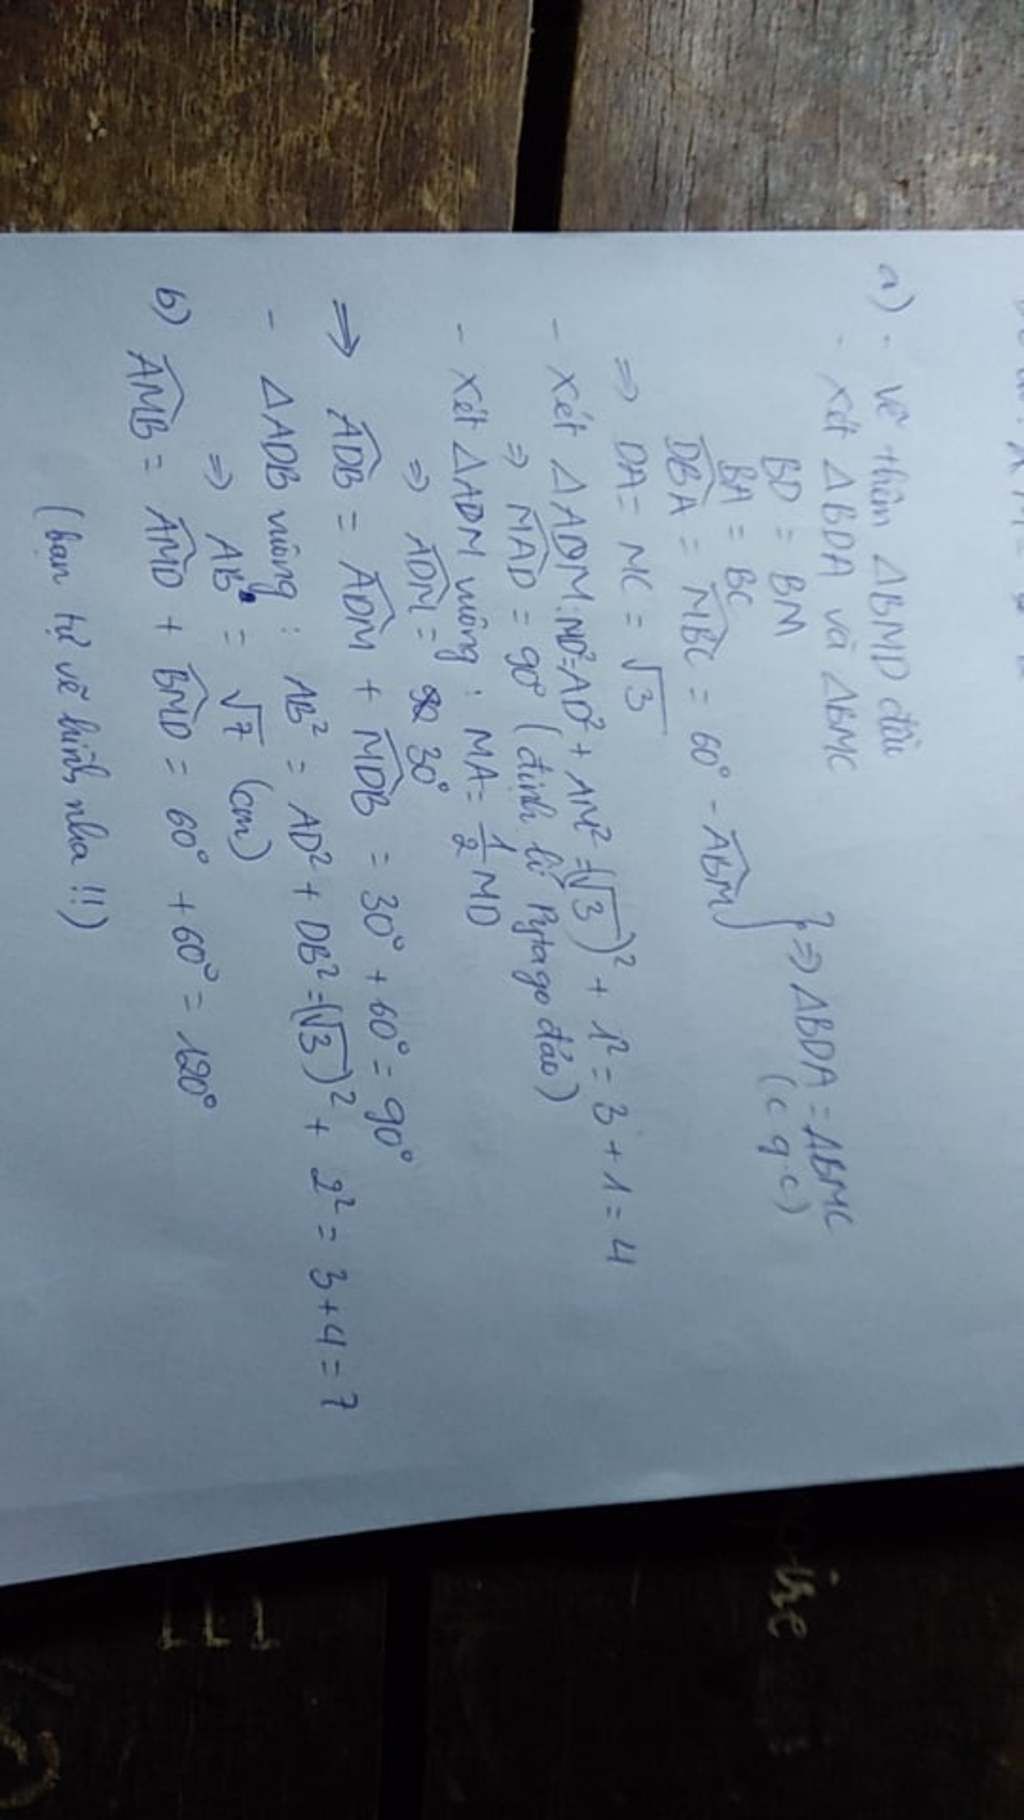 a) - Vẽ thêm ΔBMD đều
- Xét ΔBDA và ΔBMC
BD = BM
BA = BC
\widehat{DBA} = \widehat{MBC} = 60° - \widehat{ABM} } ⇒ ΔBDA = ΔBMC
(c g c)
⇒ DA = MC = √3
- Xét ΔADM: MD² = AD² + AM² = (√3)² + 1² = 3 + 1 = 4
⇒ \widehat{MAD} = 90° (định lí Pytago đảo)
- Xét ΔADM vuông: MA = \frac{1}{2} MD
⇒ \widehat{ADM} = 30°
⇒ \widehat{ADB} = \widehat{ADM} + \widehat{MDB} = 30° + 60° = 90°
- ΔADB vuông: AB² = AD² + DB² = (√3)² + 2² = 3 + 4 = 7
⇒ AB = √7 (cm)
b) \widehat{AMB} = \widehat{AMD} + \widehat{BMD} = 60° + 60° = 120°
(bạn tự vẽ hình nha !!)